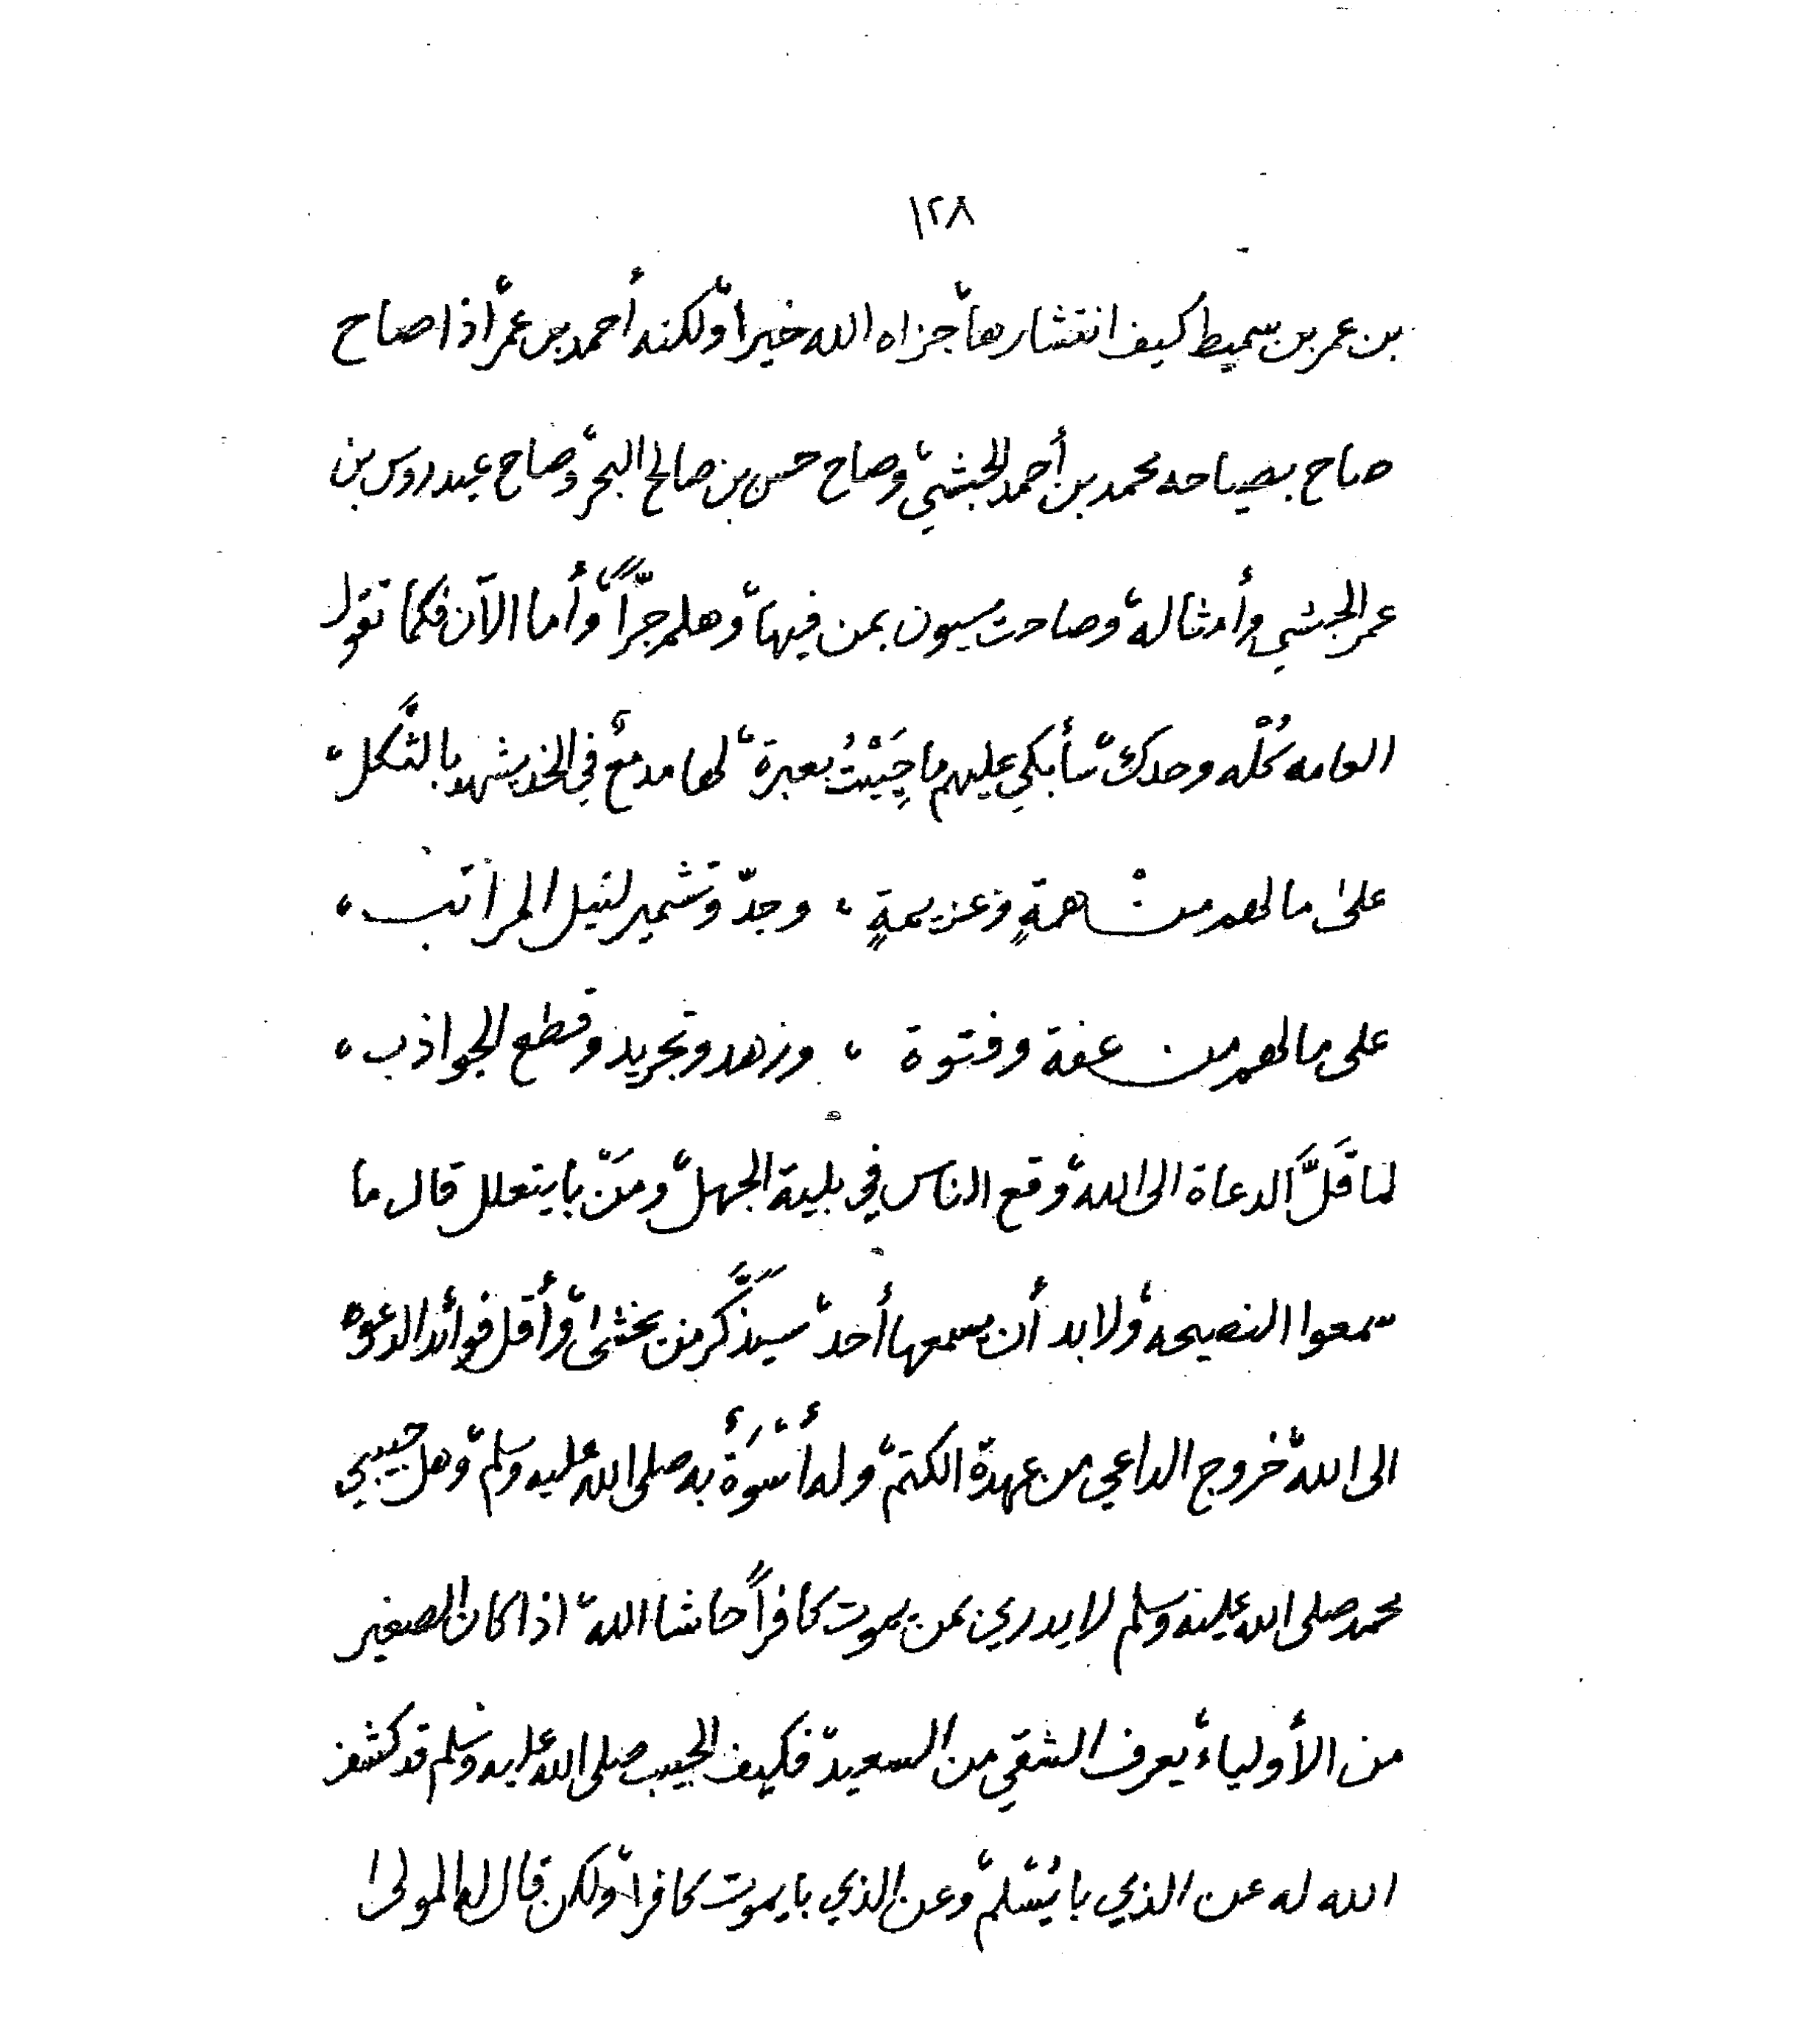 ١٢٨
بن عمر بن سميط كيف انتشارها، جزاه الله خيرا، ولكنه أحمد بن عمر، اذا صاح
صاح بصياحه محمد بن أحمد الحبشي، وصاح حسن بن صالح البحر، وصاح عيدروس بن
عمر الحبشي وأمثاله، وصاحت سيون بمن فيها، وهلم جرّاً، وأما الآن فكما تقول
العامه كُلْه وحدك، سأبكي عليهم ما حَيِيْتُ بعبرة، لها مدمعٌ في الخد يشهد بالثَّكل،
علىٰ مالهم منْ همةٍ وعزيمةٍ، وجدّ وتشمير لنيل المراتب،
على مالهم من عفة وفتوة، وزهد وتجريد وقطع الجواذب،
لما قَلَّ الدعاة الى الله، وقع الناس في بلية الجهل، ومَنْ با يتعلل قال ما
سمعوا النصيحه، ولابد أن يسمعها أحد، سيذَّكَّر من يخشىٰ، وأقل فوائد الدعوه
الى الله، خروج الداعي من عهدة الكتم، وله أُسْوَةٌ به صلى الله عليه وسلم، وهل حبيبي
محمد صلى الله عليه وسلم لا يدري بمن يموت كافراً حاشا الله، اذا كان الصغير
من الأولياء، يعرف الشقي من السعيد، فكيف الحبيب صلى الله عليه وسلم قد كشف
الله له عن الذي با يُسْلم، وعن الذي با يموت كافرا، ولكن قال له المولىٰ